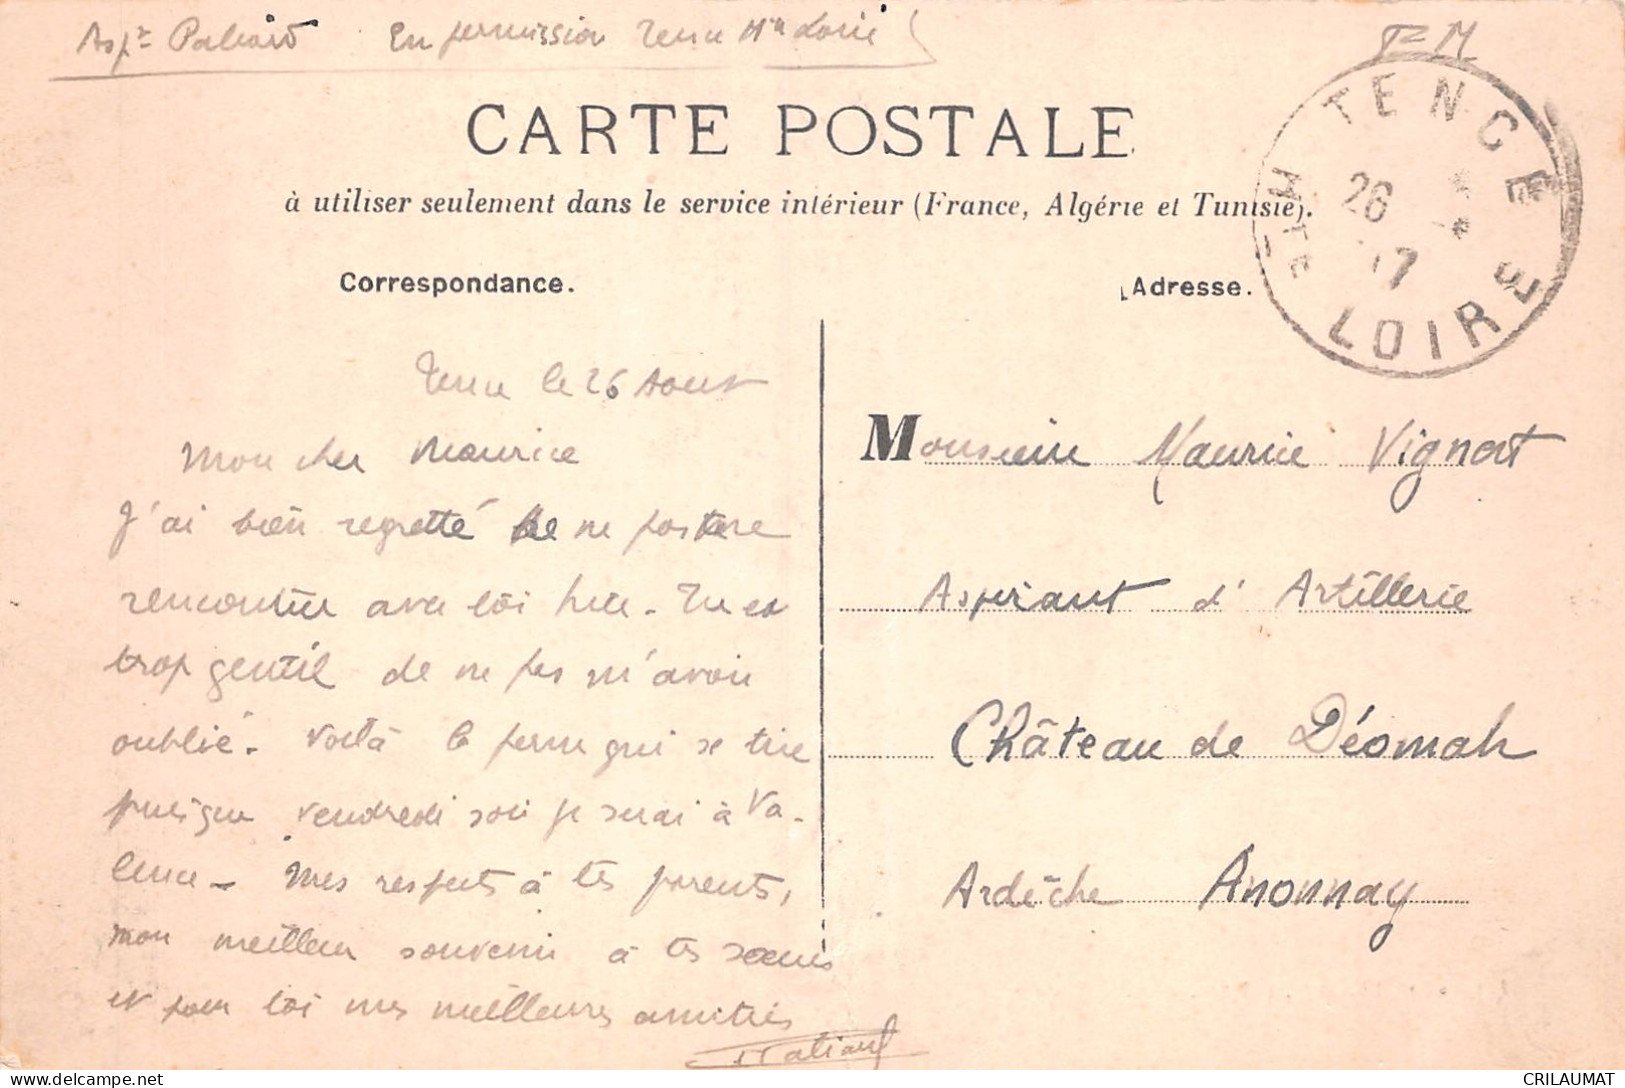 Aspt Paliard En permission Tence Hte Loire
F=M
CARTE POSTALE
à utiliser seulement dans le service intérieur (France, Algérie et Tunisie).
TENCE
26
17
HTE LOIRE
Correspondance.
Adresse.
Tence le 26 Aout
Mon cher Maurice
J'ai bien regretté de ne pas être
rencontrer avec toi hier. Tu es
trop gentil de ne pas m'avoir
oublié. Voilà la perm qui se tire
puisque vendredi soir je serai à Va-
lence. Mes respects à tes parents,
mon meilleur souvenir à tes soeurs
et pour toi mes meilleures amitiés
Paliard
Monsieur Maurice Vignat
Aspirant d'Artillerie
Château de Déomah
Ardèche Anonnay
CRILAUMAT